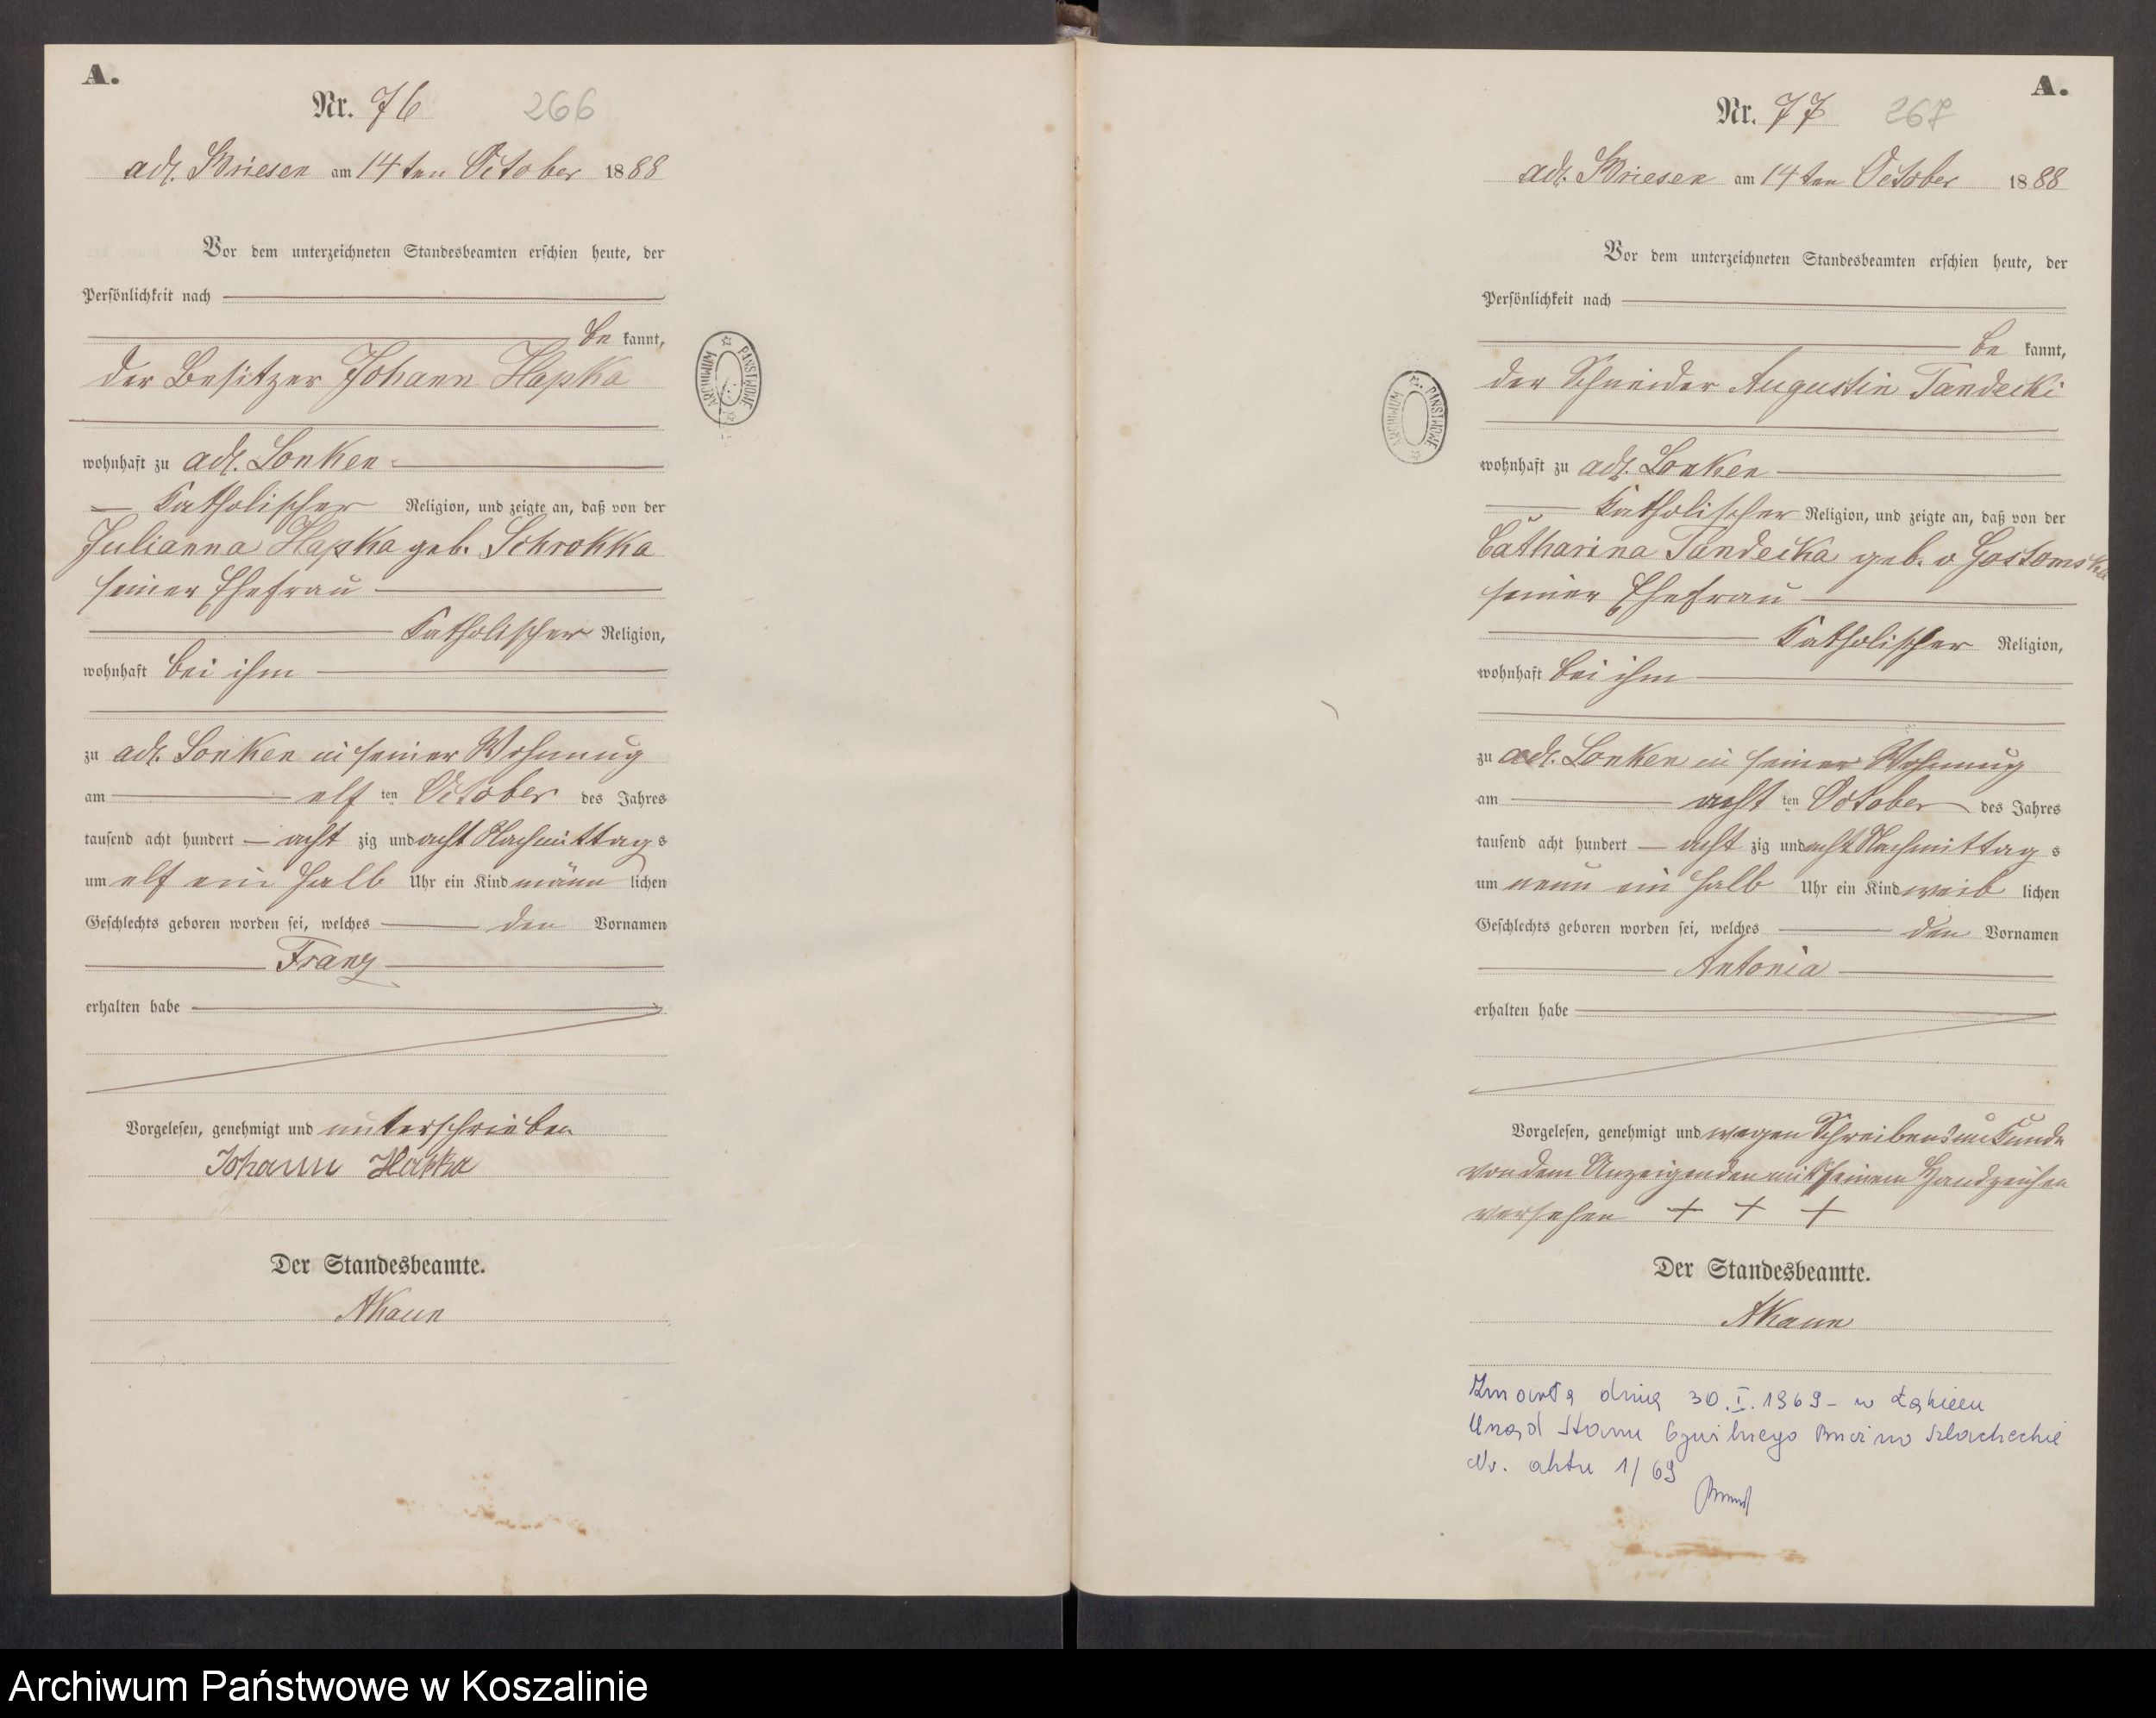 A.
Nr. 76 266
adl. Briesen am 14ten October 1888
Vor dem unterzeichneten Standesbeamten erschien heute, der
Persönlichkeit nach
be kannt,
der Besitzer Johann Hapka
wohnhaft zu adl. Lonken
Katholischer Religion, und zeigte an, daß von der
Julianna Hapka geb. Schrokka
seiner Ehefrau
Katholischer Religion,
wohnhaft bei ihm
zu adl. Lonken in seiner Wohnung
am elf ten October des Jahres
tausend acht hundert acht zig und acht Nachmittag s
um elf ein halb Uhr ein Kind männ lichen
Geschlechts geboren worden sei, welches den Vornamen
Franz
erhalten habe
Vorgelesen, genehmigt und unterschrieben
Johann Hapka
Der Standesbeamte.
AKaun
ARCHIWUM PAŃSTWOWE
A.
Nr. 77 267
adl. Briesen am 14ten October 1888
Vor dem unterzeichneten Standesbeamten erschien heute, der
Persönlichkeit nach
be kannt,
der Schneider Augustin Tandecki
wohnhaft zu adl. Lonken
Katholischer Religion, und zeigte an, daß von der
Catharina Tandecka geb. v Gostomska
seiner Ehefrau
Katholischer Religion,
wohnhaft bei ihm
zu adl. Lonken in seiner Wohnung
am acht ten October des Jahres
tausend acht hundert acht zig und acht Nachmittag s
um neun ein halb Uhr ein Kind weib lichen
Geschlechts geboren worden sei, welches den Vornamen
Antonia
erhalten habe
Vorgelesen, genehmigt und wegen Schreibensunkunde
von dem Anzeigenden mit seinem Handzeichen
versehen + + +
Der Standesbeamte.
AKaun
Zmarła dnia 30.I.1969 - w Łąkiem
Urząd Stanu Cywilnego Borzyszkowy
Nr. aktu 1/69
ARCHIWUM PAŃSTWOWE
Archiwum Państwowe w Koszalinie